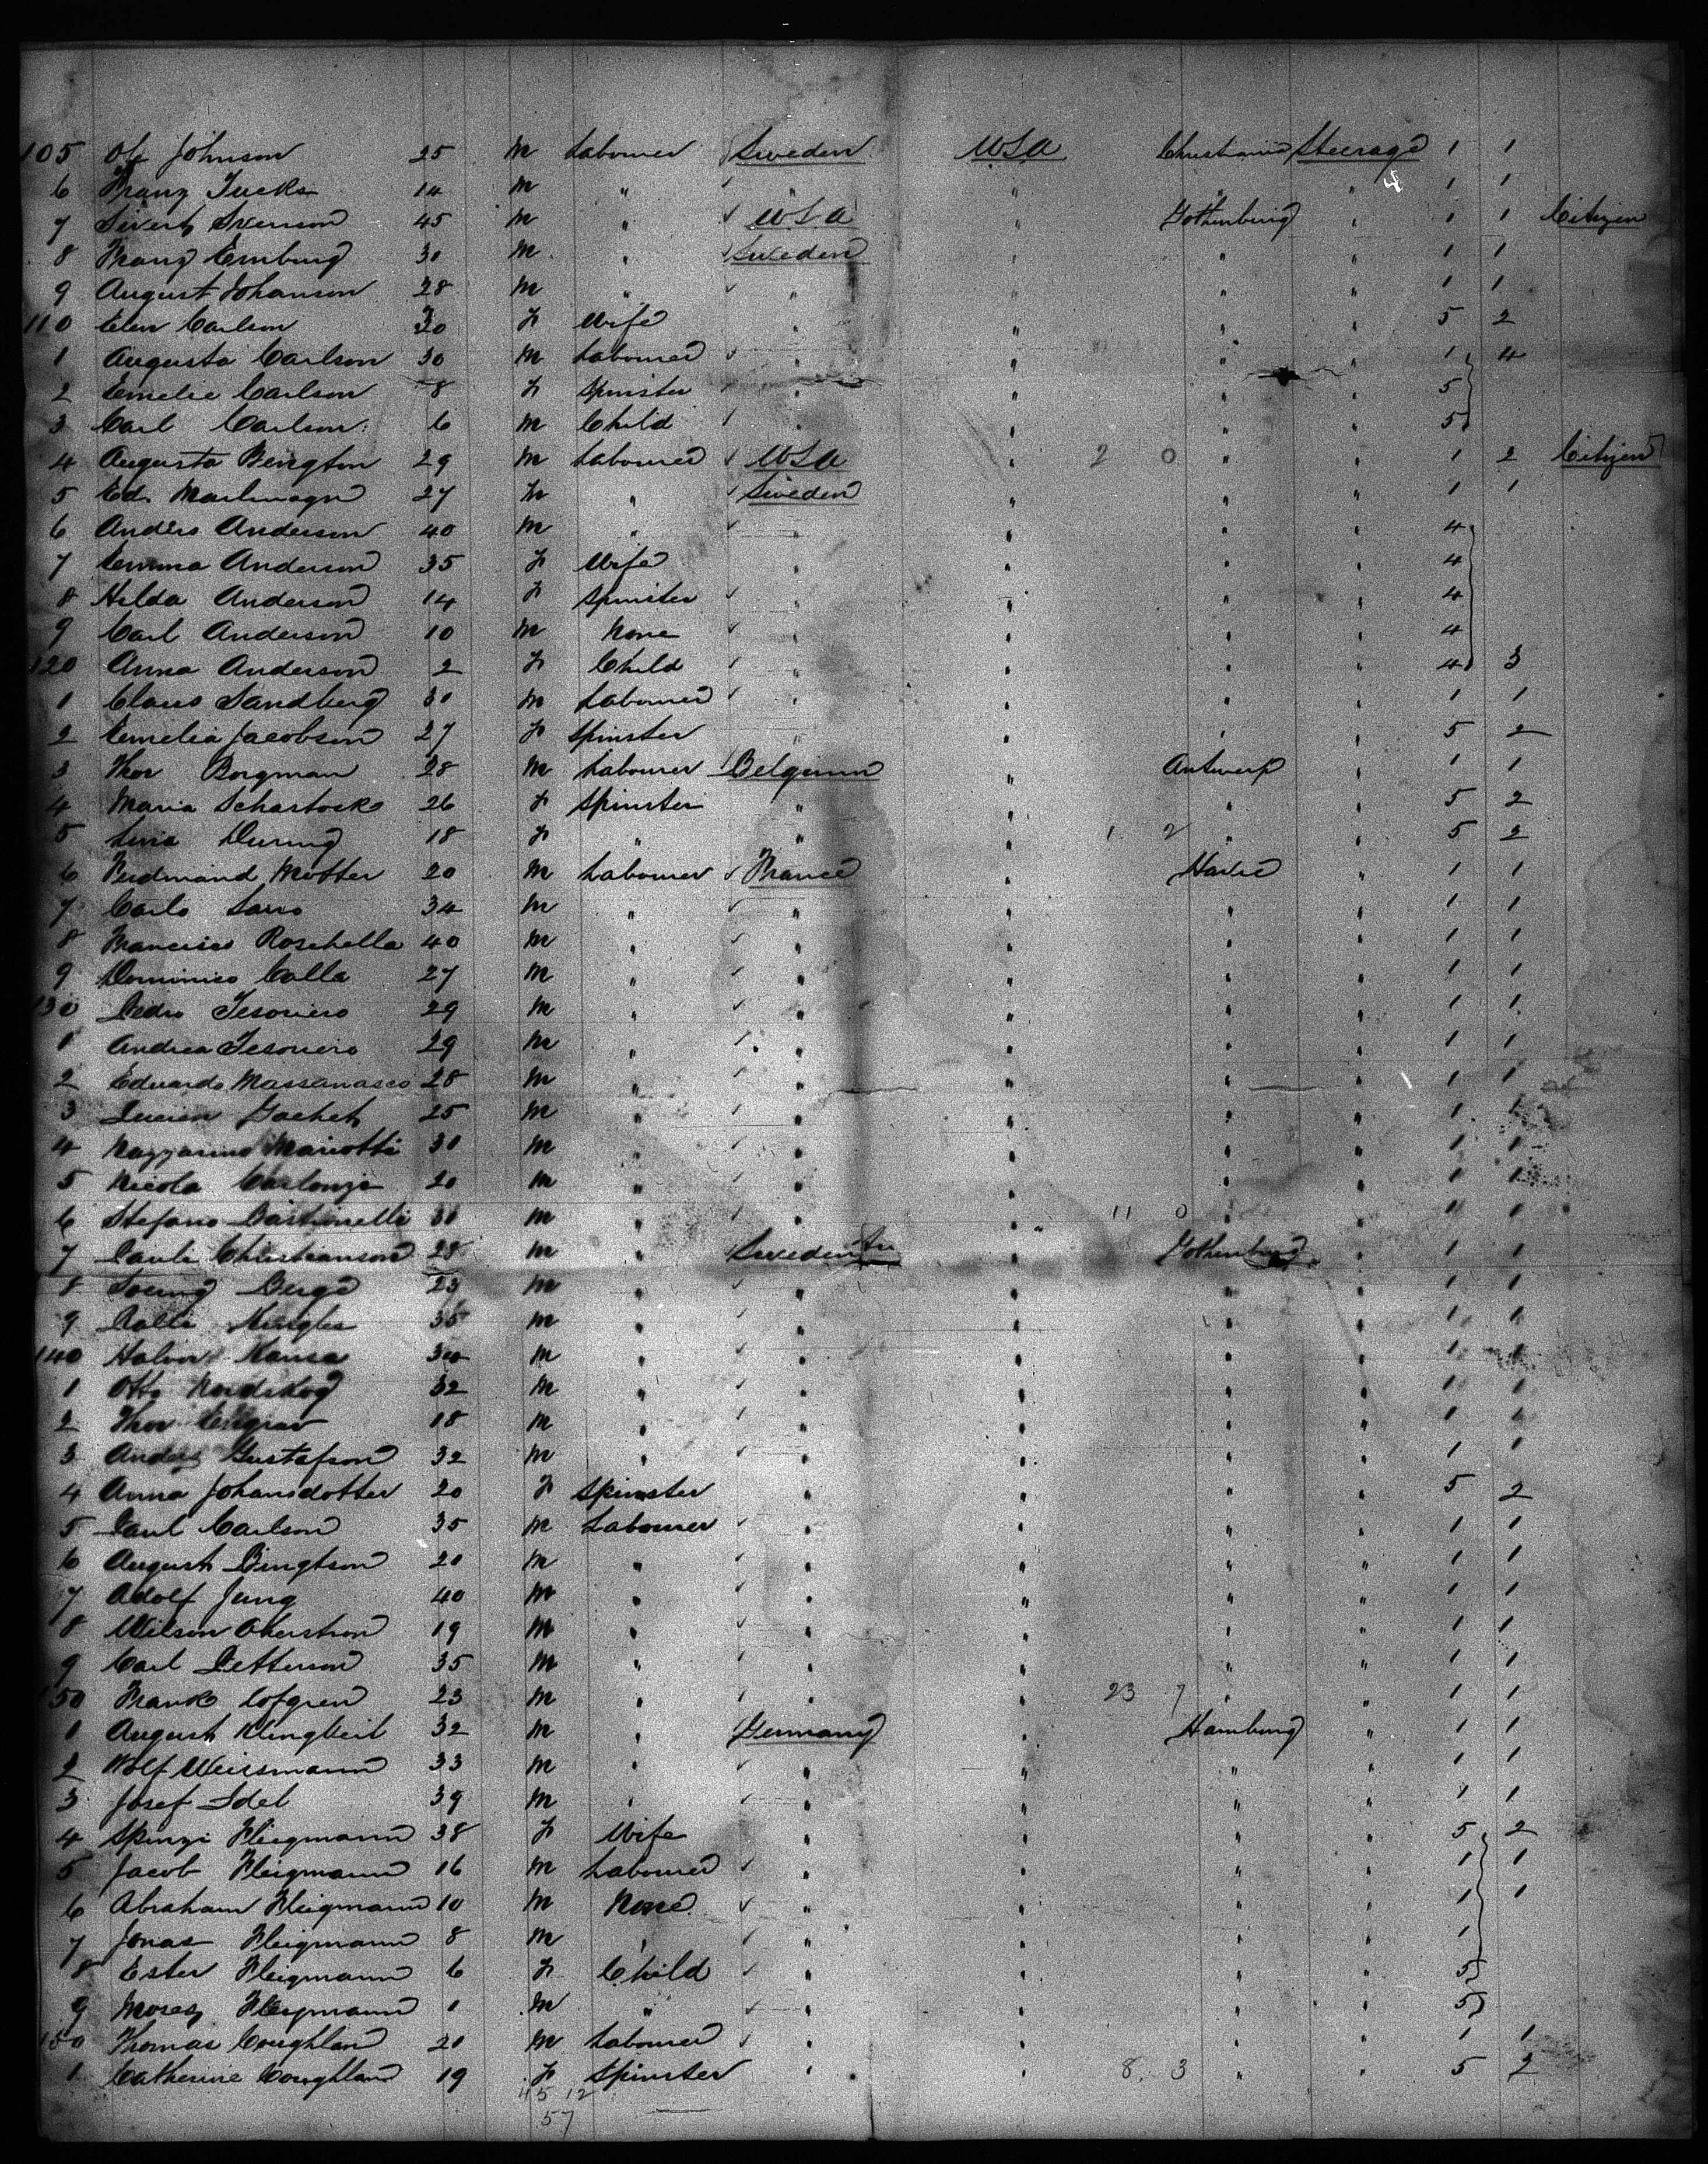 105 Ole Johnson 25 M Labourer Sweden USA Christiania Steerage 1 1
6 Franz Fucks 14 M " " " " " 1 1
4
7 Sivert Svenson 45 M " USA " Gothenburg " 1 1 Citizen
8 Franz Emburg 30 M " Sweden " " " 1 1
9 August Johanson 28 M " " " " " 1 1
110 Elen Carlson 30 F Wife " " " " 5 2
1 Augusta Carlson 30 M Labourer " " " " 1 4
2 Emelie Carlson 8 F Spinster " " " " 5
3 Carl Carlson 6 M Child " " " " 5
4 Augusta Bengton 29 M Labourer USA " 2 0 " " 1 2 Citizen
5 Ed. 27 " Sweden " " " 1 1
6 Anders Anderson 40 M " " " " " 4
7 Emma Anderson 35 F Wife " " " " 4
8 Hilda Anderson 14 F Spinster " " " " 4
9 Carl Anderson 10 M None " " " " 4
120 Anna Anderson 2 F Child " " " " 4 3
1 Claus Sandberg 30 M Labourer " " " " 1 1
2 Emelia Jacobson 27 F Spinster " " " " 5 2
3 Thor Borgman 28 M Labourer Belgium " Antwerp " 1 1
4 Maria 26 F Spinster " " " " 5 2
5 18 F " " " 1 2 " " 5 2
6 Ferdinand Motter 20 M Labourer France " Havre " 1 1
7 Carlo 34 M " " " " " 1 1
8 Francisco Roschella 40 M " " " " " 1 1
9 Dominico Calla 27 M " " " " " 1 1
130 Pedro Tesoriero 29 M " " " " " 1 1
1 Andrea Tesoriero 29 M " " " " " 1 1
2 Eduardo Massanasco 28 M " " " " " 1 1
3 Lucien Gachet 25 M " " " " " 1 1
4 Nazzarino Mariotti 30 M " " " " " 1 1
5 Nicola Carlonzi 20 M " " " " " 1 1
6 Stefano Bastinelli 31 M " " " 11 0 " " 1 1
7 Pauli Christianson 28 M " Sweden " Gothenburg " 1 1
8 Berge 23 M " " " " " 1 1
9 35 M " " " " " 1 1
140 Halvor Hansa 30 M " " " " " 1 1
1 Otto Nordskog 32 M " " " " " 1 1
2 Thor 18 M " " " " " 1 1
3 Anders Gustafson 32 M " " " " " 1 1
4 Anna Johansdotter 20 F Spinster " " " " 5 2
5 Paul Carlson 35 M Labourer " " " " 1 1
6 August Bengtson 20 M " " " " " 1 1
7 Adolf Jung 40 M " " " " " 1 1
8 Wilson Okerstrom 19 M " " " " " 1 1
9 Carl Petterson 35 M " " " " " 1 1
150 Frank Lofgren 23 M " " " 23 7 " " 1 1
1 August Klingbeil 32 M " Germany " Hamburg " 1 1
2 Wolf Weismann 33 M " " " " " 1 1
3 Josef Idel 39 M " " " " " 1 1
4 Fleigmann 38 F Wife " " " " 5 2
5 Jacob Fleigmann 16 M Labourer " " " " 1 1
6 Abraham Fleigmann 10 M None " " " " 1 1
7 Jonas Fleigmann 8 M " " " " " 1
8 Ester Fleigmann 6 F Child " " " " 5
9 Moses Fleigmann 1 M " " " " " 5
150 Thomas Coughlan 20 M Labourer " " " " 1 1
1 Catherine Coughlan 19 F Spinster " " 8 3 " " 5 2
45 12
57